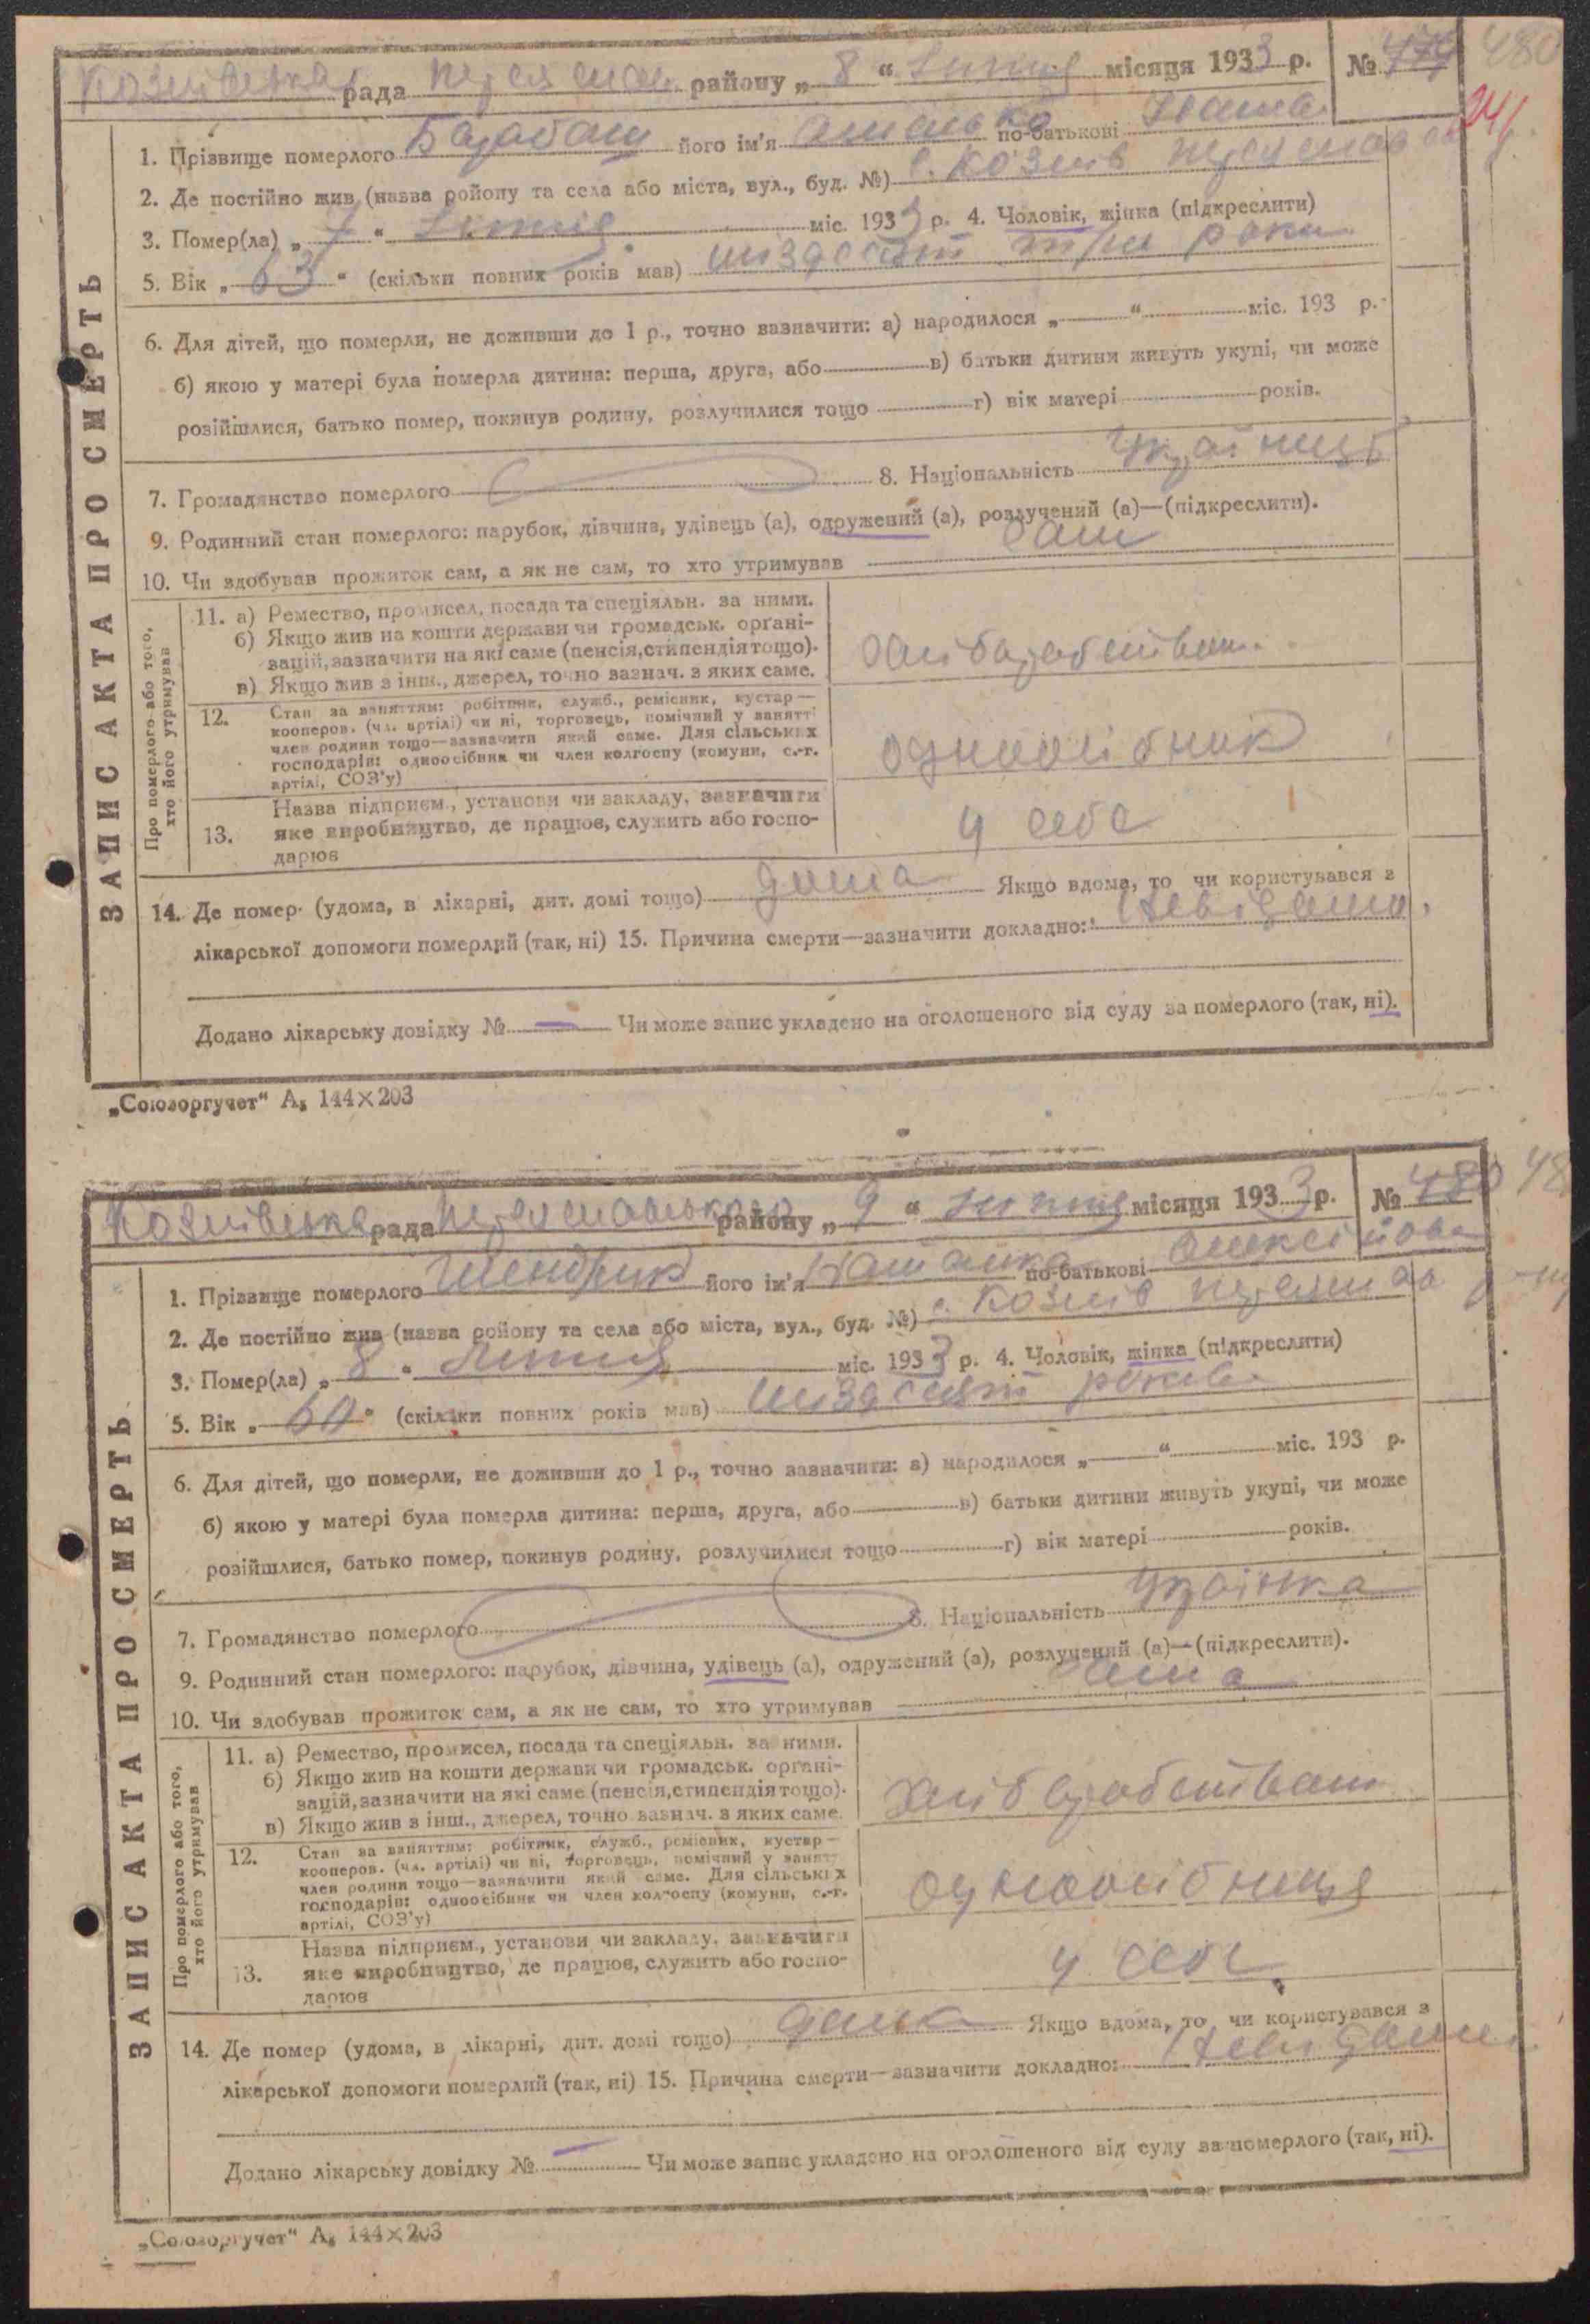 Козлівська рада Переяслав. району „ 8 “ Липня місяця 1933 р. № 479 480
241
1. Прізвище померлого Барабаш його ім'я по-батькові
2. Де постійно жив (назва ройону та села або міста, вул., буд. №) с. Козлів Переяслав
3. Помер(ла) „ 7 “ Липня міс. 1933 р. 4. Чоловік, жінка (підкреслити)
5. Вік „ 63 “ (скільки повних років мав) шиздесят три роки
6. Для дітей, що померли, не доживши до 1 р., точно вазначити: а) народилося „ “ міс. 193 р.
б) якою у матері була померла дитина: перша, друга, або в) батьки дитини живуть укупі, чи може
розійшлися, батько помер, покинув родину, розлучилися тощо г) вік матері років.
7. Громадянство померлого 8. Національність Українець
9. Родинний стан померлого: парубок, дівчина, удівець (а), одружений (а), розлучений (а)—(підкреслити).
10. Чи здобував прожиток сам, а як не сам, то хто утримував сам
ЗАПИС АКТА ПРО СМЕРТЬ
Про померлого або того, хто його утримував
11. а) Ремество, промисел, посада та спеціяльн. за ними.
б) Якщо жив на кошти держави чи громадськ. орґані-
зацій, зазначити на які саме (пенсія, стипендія тощо).
в) Якщо жив з інш., джерел, точно вазнач. з яких саме.
хліборобством
12. Стан за заняттям: робітник, служб., ремісник, кустар—
кооперов. (чл. артілі) чи ні, торговець, помічний у занятті
член родини тощо—зазначити який саме. Для сільських
господарів: одноосібник чи член колгоспу (комуни, с.-г.
артілі, СОЗ'у)
одноосібник
13. Назва підприєм., установи чи закладу, зазначити
яке виробництво, де працює, служить або госпо-
дарює
у себе
14. Де помер (удома, в лікарні, дит. домі тощо) дома Якщо вдома, то чи користувався з
лікарської допомоги померлий (так, ні) 15. Причина смерти—зазначити докладно: Невідомо.
Додано лікарську довідку № — Чи може запис укладено на оголошеного від суду за померлого (так, ні).
„Союзоргучет“ А₅ 144×203
Козлівська рада Переяславського району „ 9 “ Липня місяця 1933 р. № 480 48
1. Прізвище померлого його ім'я Наталка по-батькові Олексійовна
2. Де постійно жив (назва ройону та села або міста, вул., буд. №) с. Козлів Переяслав р-ну
3. Помер(ла) „ 8 “ Липня міс. 1933 р. 4. Чоловік, жінка (підкреслити)
5. Вік „ 60 “ (скільки повних років мав) шиздесят років
6. Для дітей, що померли, не доживши до 1 р., точно вазначити: а) народилося „ “ міс. 193 р.
б) якою у матері була померла дитина: перша, друга, або в) батьки дитини живуть укупі, чи може
розійшлися, батько помер, покинув родину, розлучилися тощо г) вік матері років.
7. Громадянство померлого 8. Національність Українка
9. Родинний стан померлого: парубок, дівчина, удівець (а), одружений (а), розлучений (а)—(підкреслити).
10. Чи здобував прожиток сам, а як не сам, то хто утримував сама
ЗАПИС АКТА ПРО СМЕРТЬ
Про померлого або того, хто його утримував
11. а) Ремество, промисел, посада та спеціяльн. за ними.
б) Якщо жив на кошти держави чи громадськ. орґані-
зацій, зазначити на які саме (пенсія, стипендія тощо).
в) Якщо жив з інш., джерел, точно вазнач. з яких саме.
хліборобством
12. Стан за заняттям: робітник, служб., ремісник, кустар—
кооперов. (чл. артілі) чи ні, торговець, помічний у занятті
член родини тощо—зазначити який саме. Для сільських
господарів: одноосібник чи член колгоспу (комуни, с.-г.
артілі, СОЗ'у)
одноосібниця
13. Назва підприєм., установи чи закладу, зазначити
яке виробництво, де працює, служить або госпо-
дарює
у себе
14. Де помер (удома, в лікарні, дит. домі тощо) дома Якщо вдома, то чи користувався з
лікарської допомоги померлий (так, ні) 15. Причина смерти—зазначити докладно: Невідомо
Додано лікарську довідку № — Чи може запис укладено на оголошеного від суду за померлого (так, ні).
„Союзоргучет“ А₅ 144×203